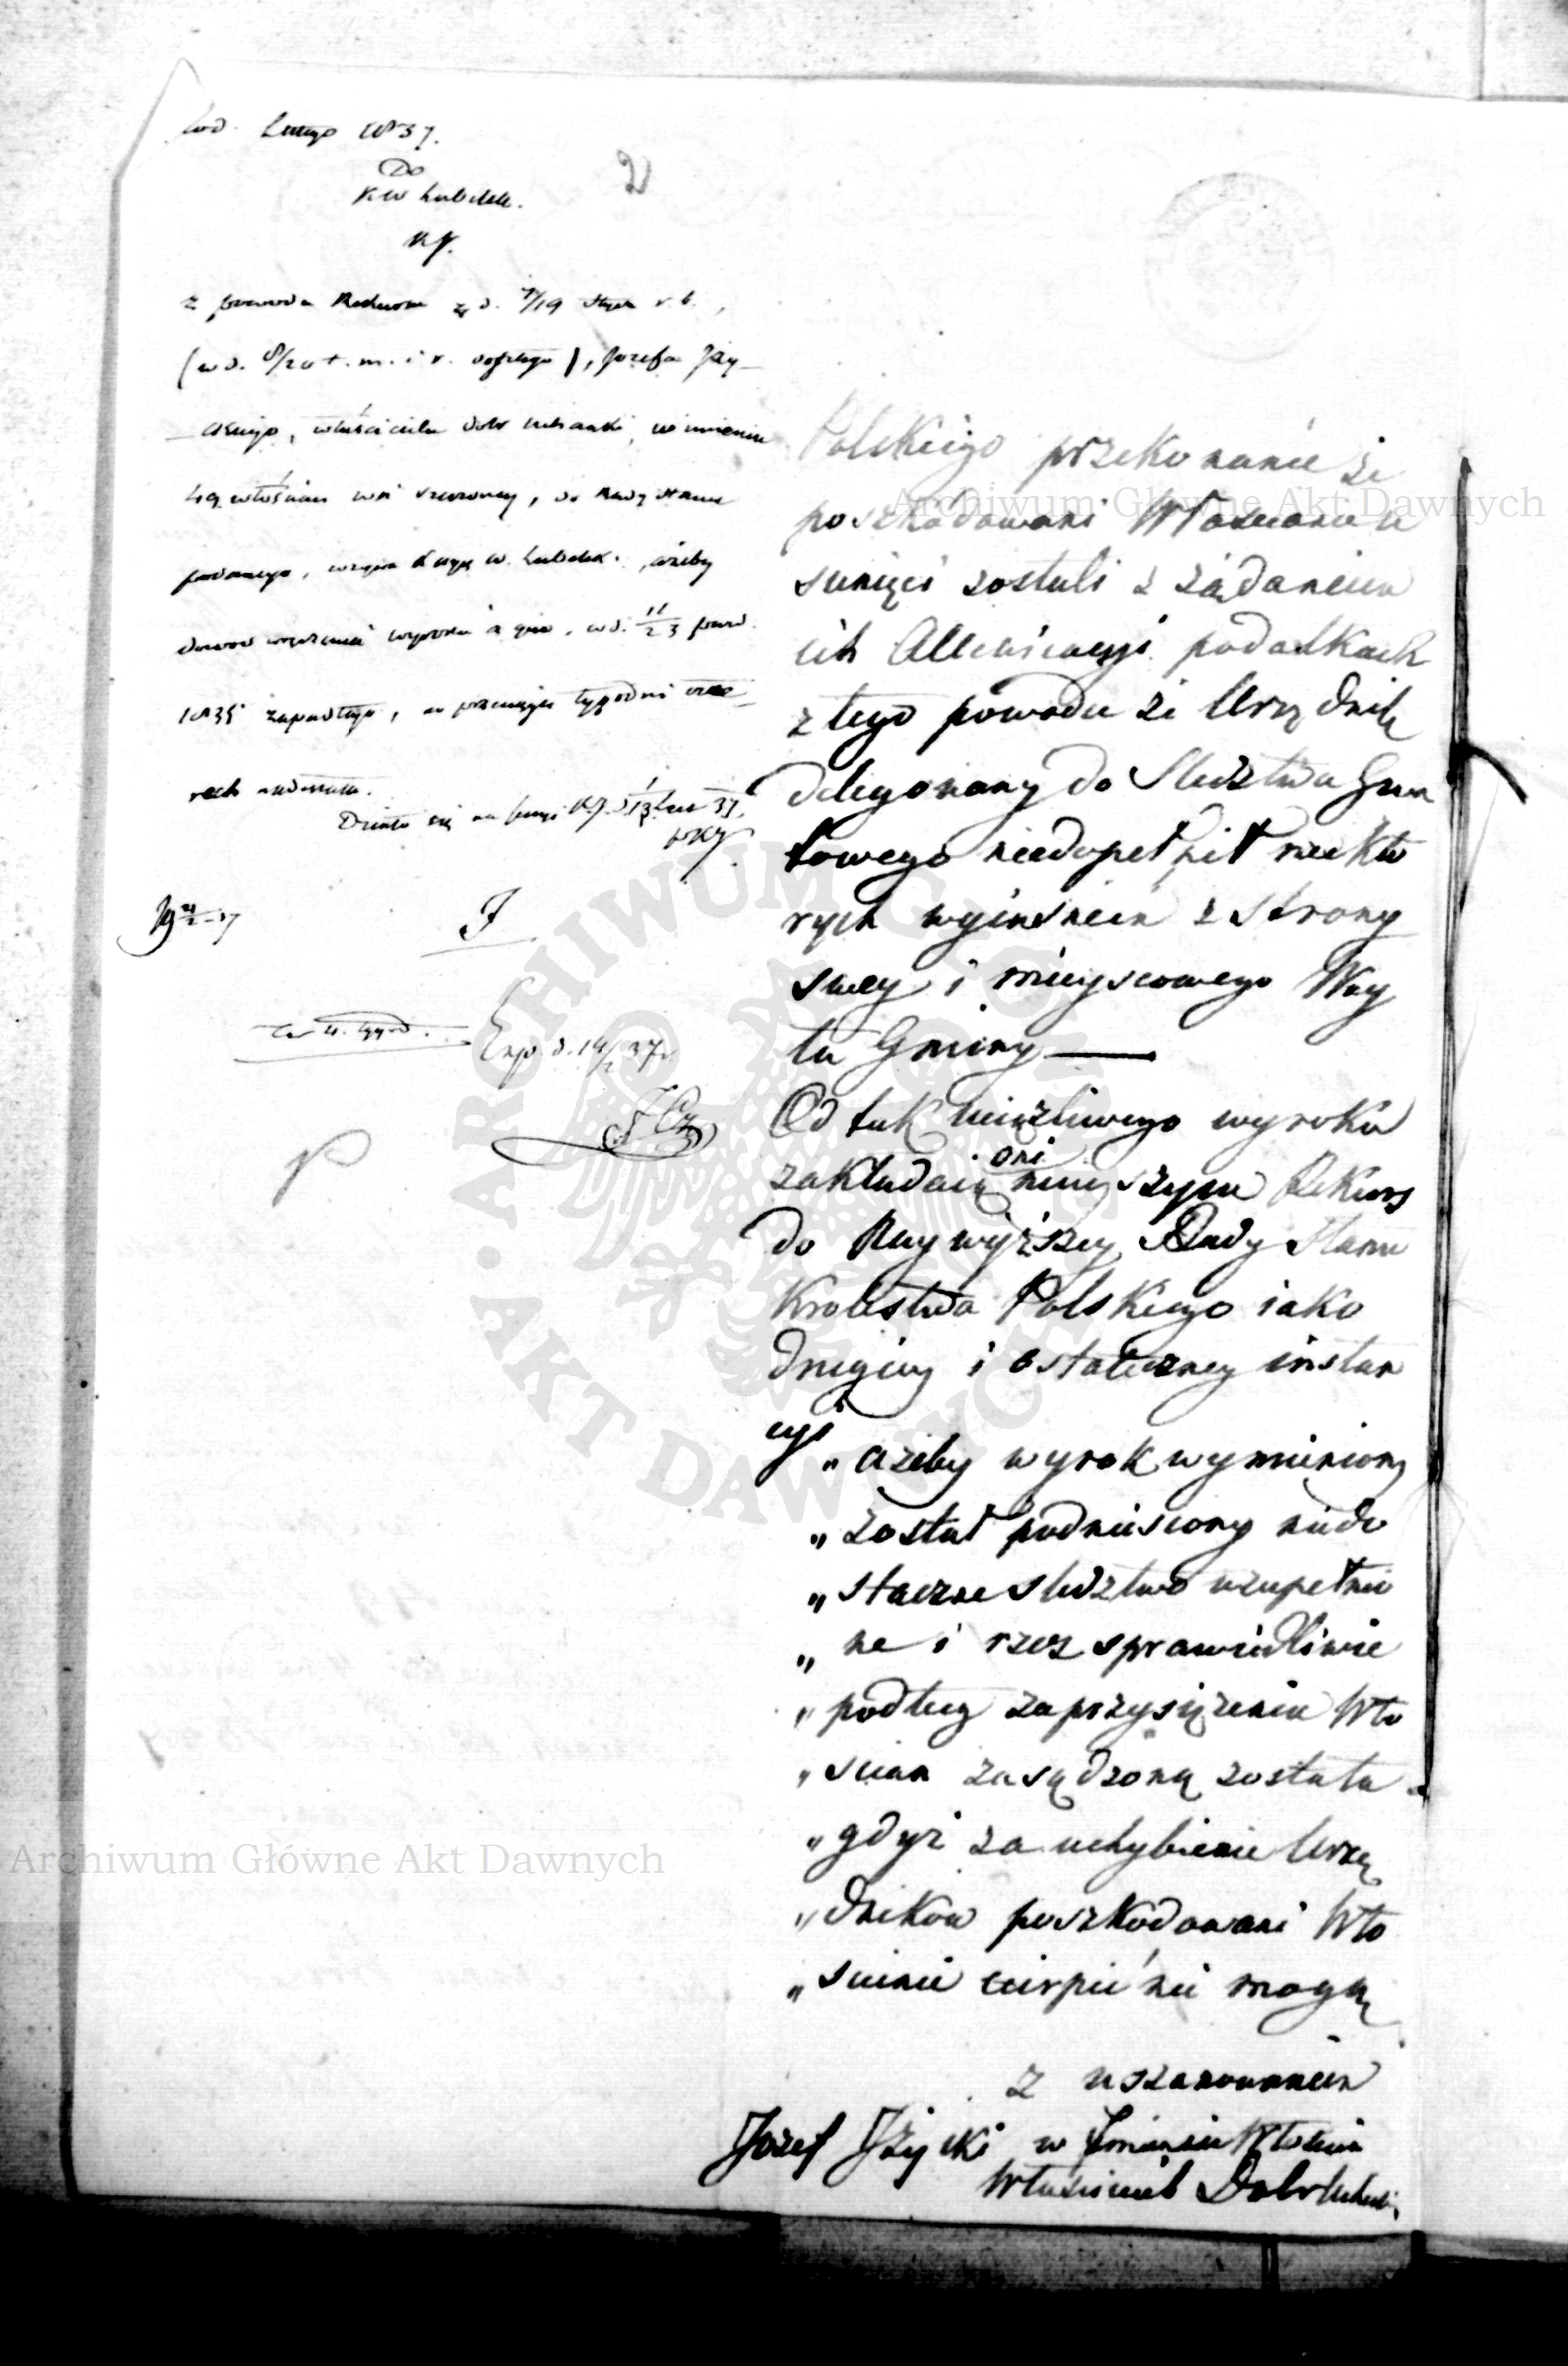 Lutego 1837.
2
Do
KW Lubelsk.
z powodu Rekursu z d. 7/19 Stycz r. b.,
(w d. 8/20 t. m. i r. doszłego), Józefa Jży-
ckiego, właściciela dobr w imieniu
włościan wsi do Rady Stanu
podanego, wzywa w. Lubelsk. ażeby
dowod wręczenia wyroku d. 11/23
1835 zapadłego, w przeciągu tygodni czte-
rech nadesłała.
Działo się na sessyi
za 4. tygod.
Exp. d. 14/2 37r
Polskiego przekonanie że
poszkodowani Włoscianie u
sunięci zostali z żądaniem
ich Allewiacyi podatkach
z tego powodu że Urzędnik
delegowany do Sledztwa Grun
towego niedopełnił niektó
rych wyiasnien z strony
swey i mieyscowego Woy
ta Gminy —
Od tak uciążliwego wyroku
zakładaią oni nieiszym Rekurs
do Naywyższey Rady Stanu
Krolestwa Polskiego iako
drugiey i ostateczney instan
cyi
„ ażeby wyrok wymieniony
„ został podniesiony niedo
„ stateczne sledztwo uzupełnio
„ ne i rzecz sprawiedliwie
„ podług zaprzysiężenia Wło
„ scian zasądzoną została
„ gdyż za uchybienie Urzę
„ dnikow poszkodowani Wło
„ scianie cierpieć nie mogą
z uszanowaniem
Jozef Jżycki w Imieniu Włoscian
Własciciel Dobr
Archiwum Główne Akt Dawnych
Archiwum Główne Akt Dawnych
ARCHIWUM GŁÓWNE · AKT DAWNYCH ·